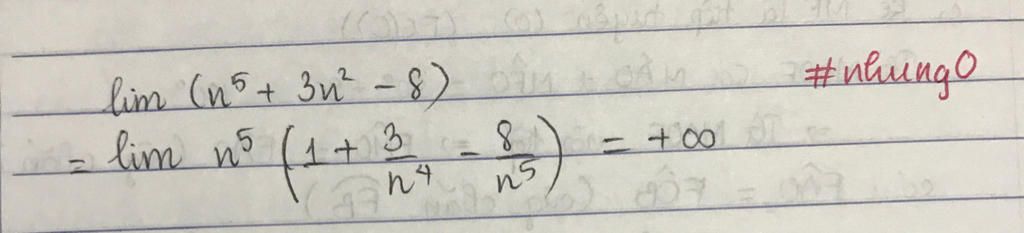 lim (n⁵ + 3n² - 8)
#nhung0
= lim n⁵ (1 + 3/n⁴ - 8/n⁵) = +∞